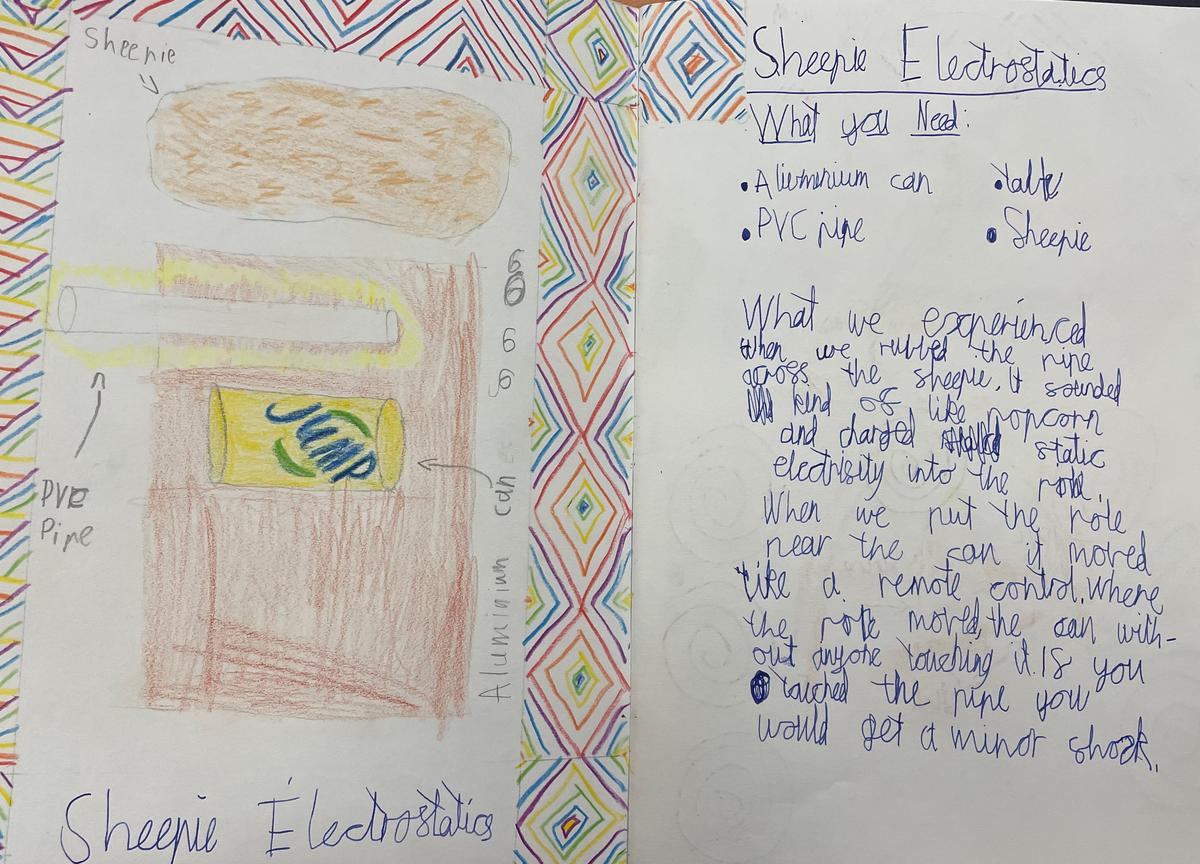 Sheepie
6
6
6
6
JUMP
PVC
Pipe
Aluminium can
Sheepie Electrostatics
Sheepie Electrostatics
What you Need:
• Aliumenium can
• table
• PVC pipe
• Sheepie
What we experienced
When we rubbed the pipe
across the sheepie, it sounded
kind of like popcorn
and charged static
electrisity into the
When we put the
near the can it moved
like a remote control. Where
the moved the can with-
out anyone touching it. If you
touched the pipe you
would get a minor shock.